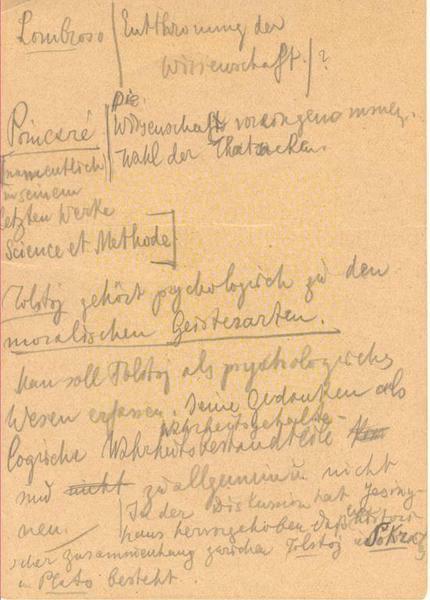 Lombroso | Entthronung der
Wissenschaft. | ?
Poincaré | Die
Wissenschaft
Wahl der Thatsachen.
[namentlich
in seinem
letzten Werke
Science et Methode]
Tolstoj gehört psychologisch zu den
moralischen Geistesarten.
Man soll Tolstoj als psychologisches
Wesen erfassen. Seine Gedanken als
logische Wahrheitsbestandteile
sind nicht zu allgemein nicht
In der Diskussion hat
hervorgehoben daß
scher Zusammenhang zwischen Tolstoj u Sokrates
u Plato besteht